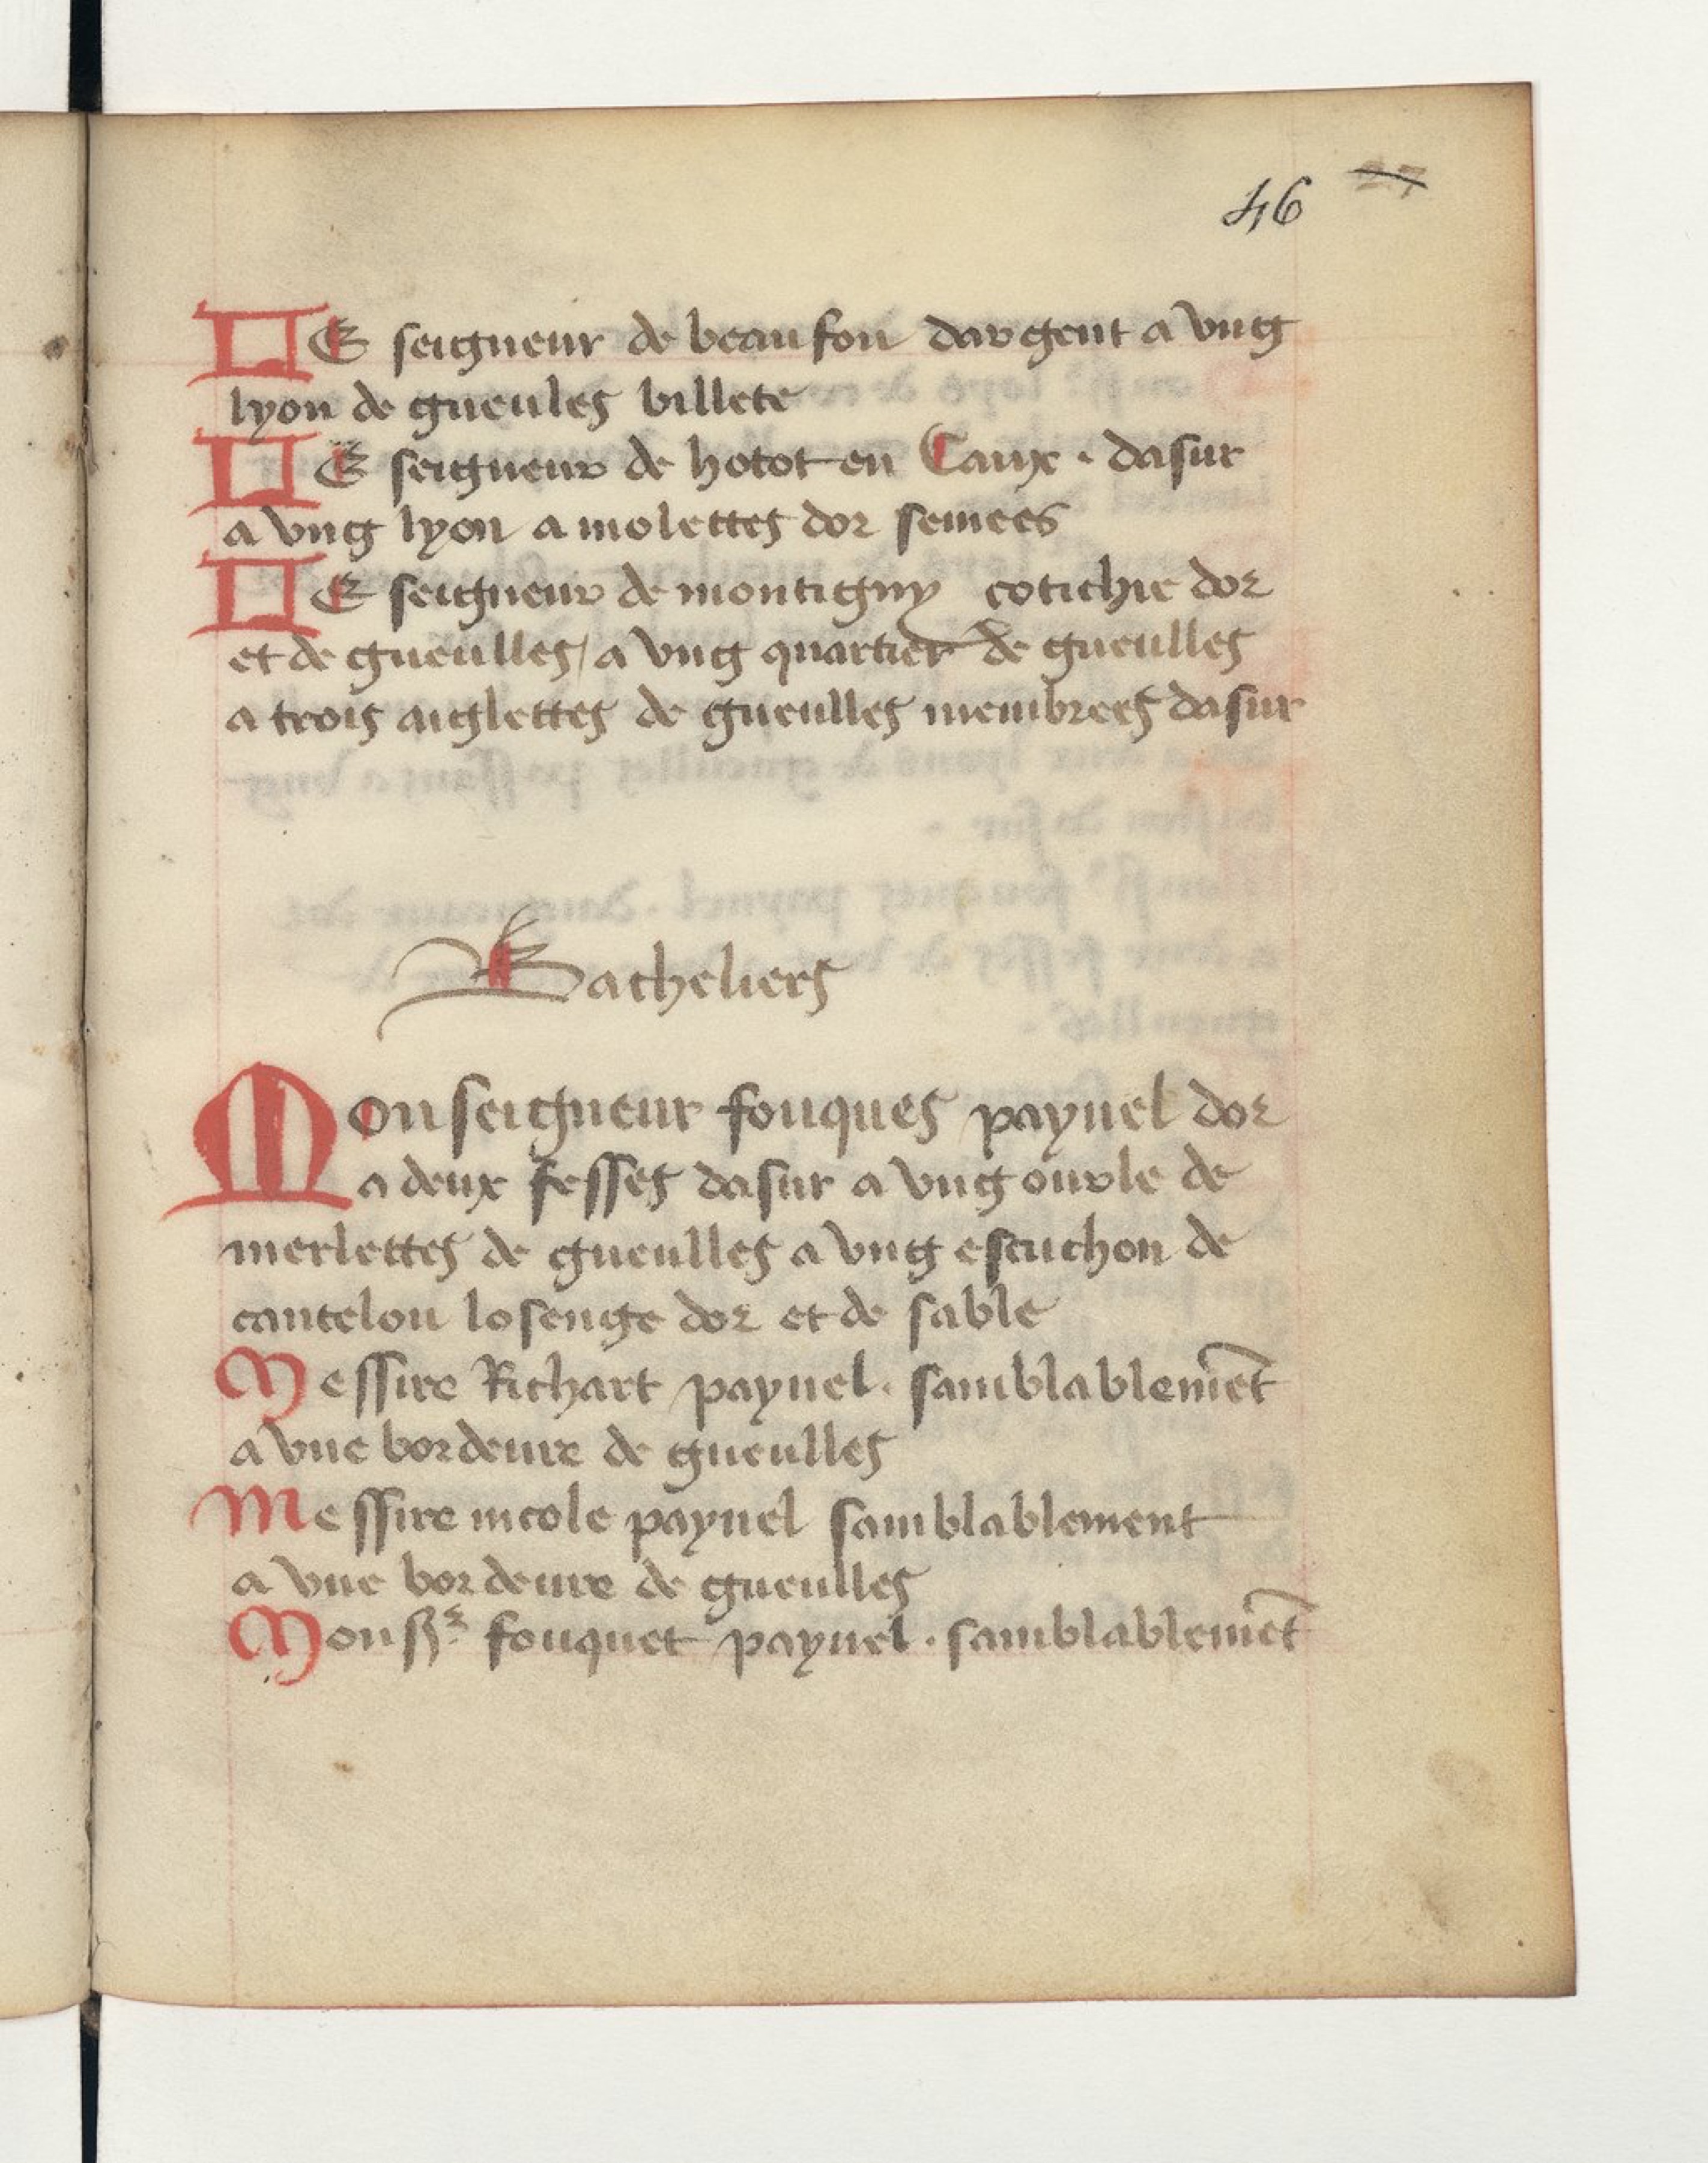 46
LE seigneur de beaufon dargent a vng
lyon de gueules billete
LE seigneur de hotot en Caux · dasur
a vng lyon a molettes dor semees
LE seigneur de montigny cotichie dor
et de gueulles / a vng quartier de gueulles
a trois aiglettes de gueulles membrees dasur
Bacheliers
Monseigneur fouques paynel dor
a deux fesses dasur a vng ourle de
merlettes de gueulles a vng escuchon de
cantelou losenge dor et de sable
Messire Richart paynel · samblablemẽt
a vne bordeure de gueulles
Messire nicole paynel samblablement
a vne bordeure de gueulles
Monsr fouquet paynel · samblablemẽt